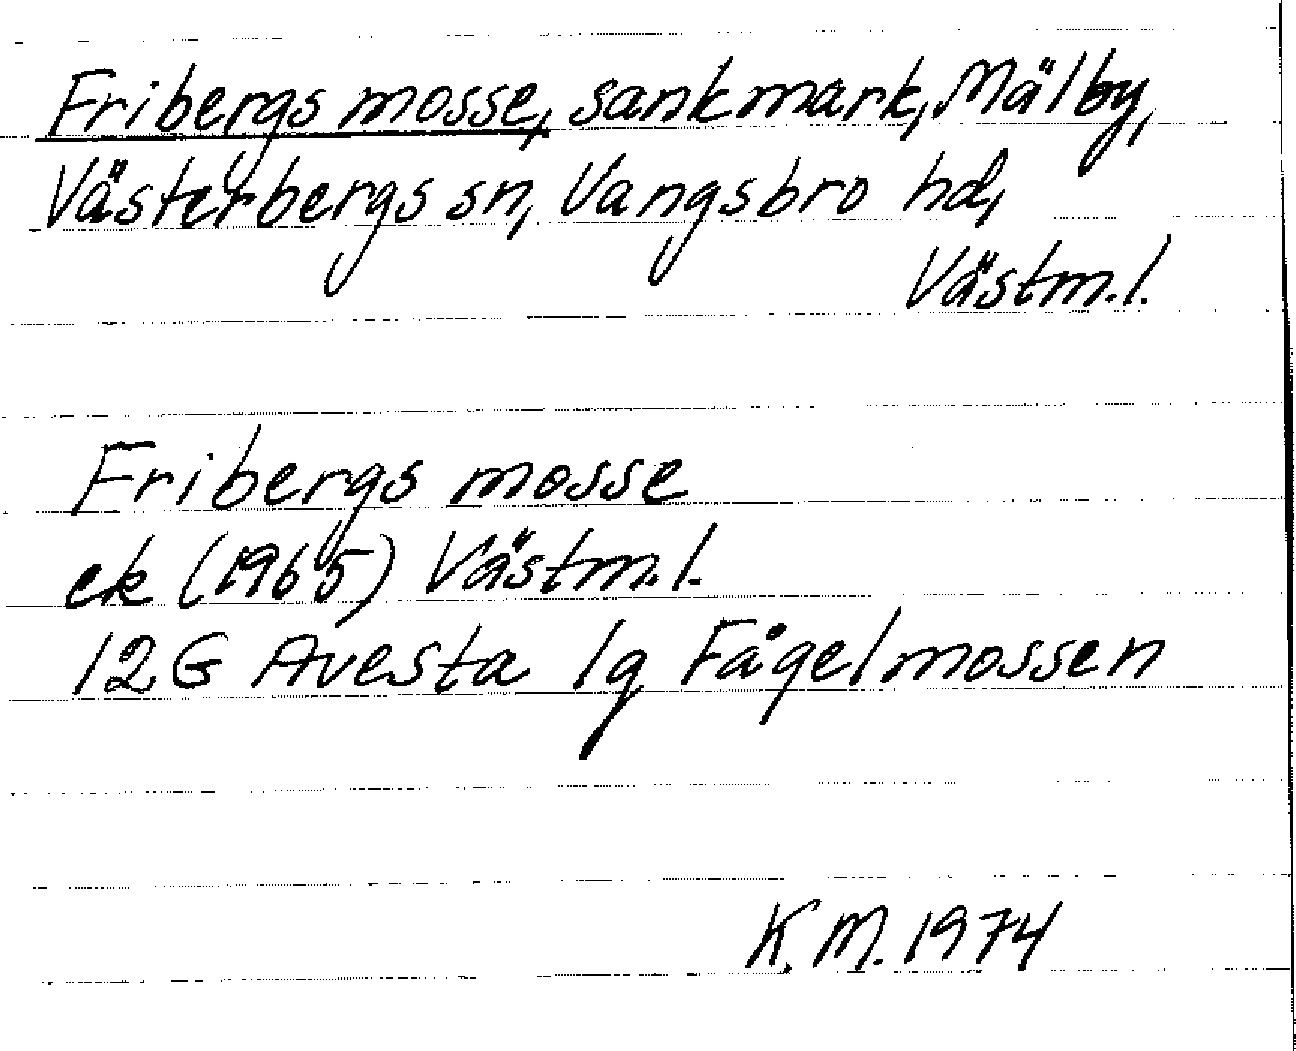 Fribergs mosse, sankmark, Mälby,
Västerbergs sn, Vangsbro hd,
Västm.l.
Fribergs mosse
ek (1965) Västm.l.
12G Avesta 1g Fågelmossen
K.M. 1974